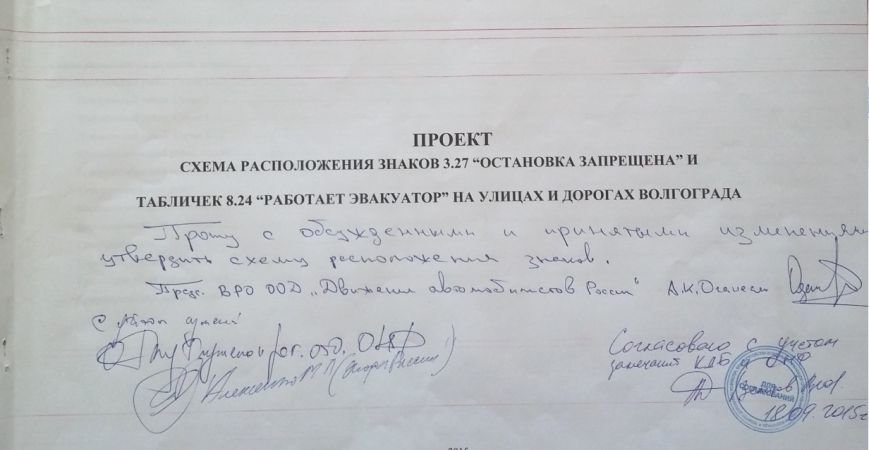 ПРОЕКТ
СХЕМА РАСПОЛОЖЕНИЯ ЗНАКОВ 3.27 “ОСТАНОВКА ЗАПРЕЩЕНА” И
ТАБЛИЧЕК 8.24 “РАБОТАЕТ ЭВАКУАТОР” НА УЛИЦАХ И ДОРОГАХ ВОЛГОГРАДА
Прошу с обсужденными и принятыми изменениями
утвердить схему расположения знаков.
Предс. ВРО ООД „Движении автомобилистов России“ А.К.
рег. отд.
Согласовано с учетом
замечаний КДБ и
ДЛЯ СОГЛАСОВАНИЙ
18.09.2015г